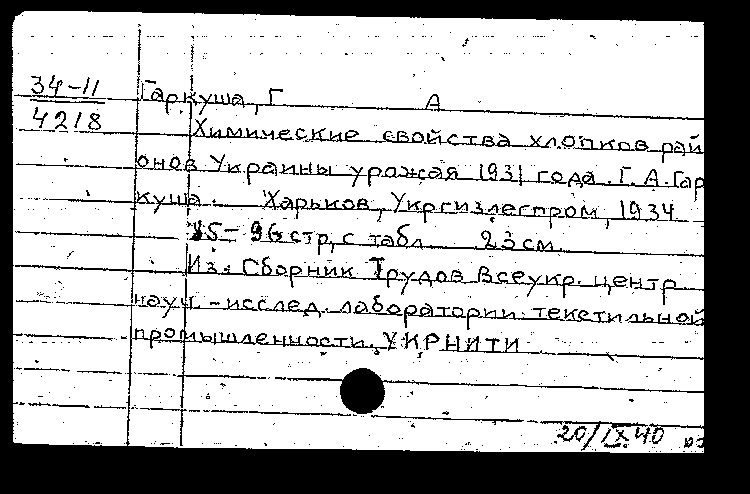 34-11
4218
Гаркуша, Г А
Химические свойства хлопков рай
онов Украины урожая 1931 года. Г. А. Гар
куша. Харьков, Укргизлегпром, 1934
96 стр, с табл 23 см.
Из. Сборник Трудов Всеукр. центр
науч. - исслед. лаборатории текстильной
промышленности. УКРНИТИ
20/IX 40